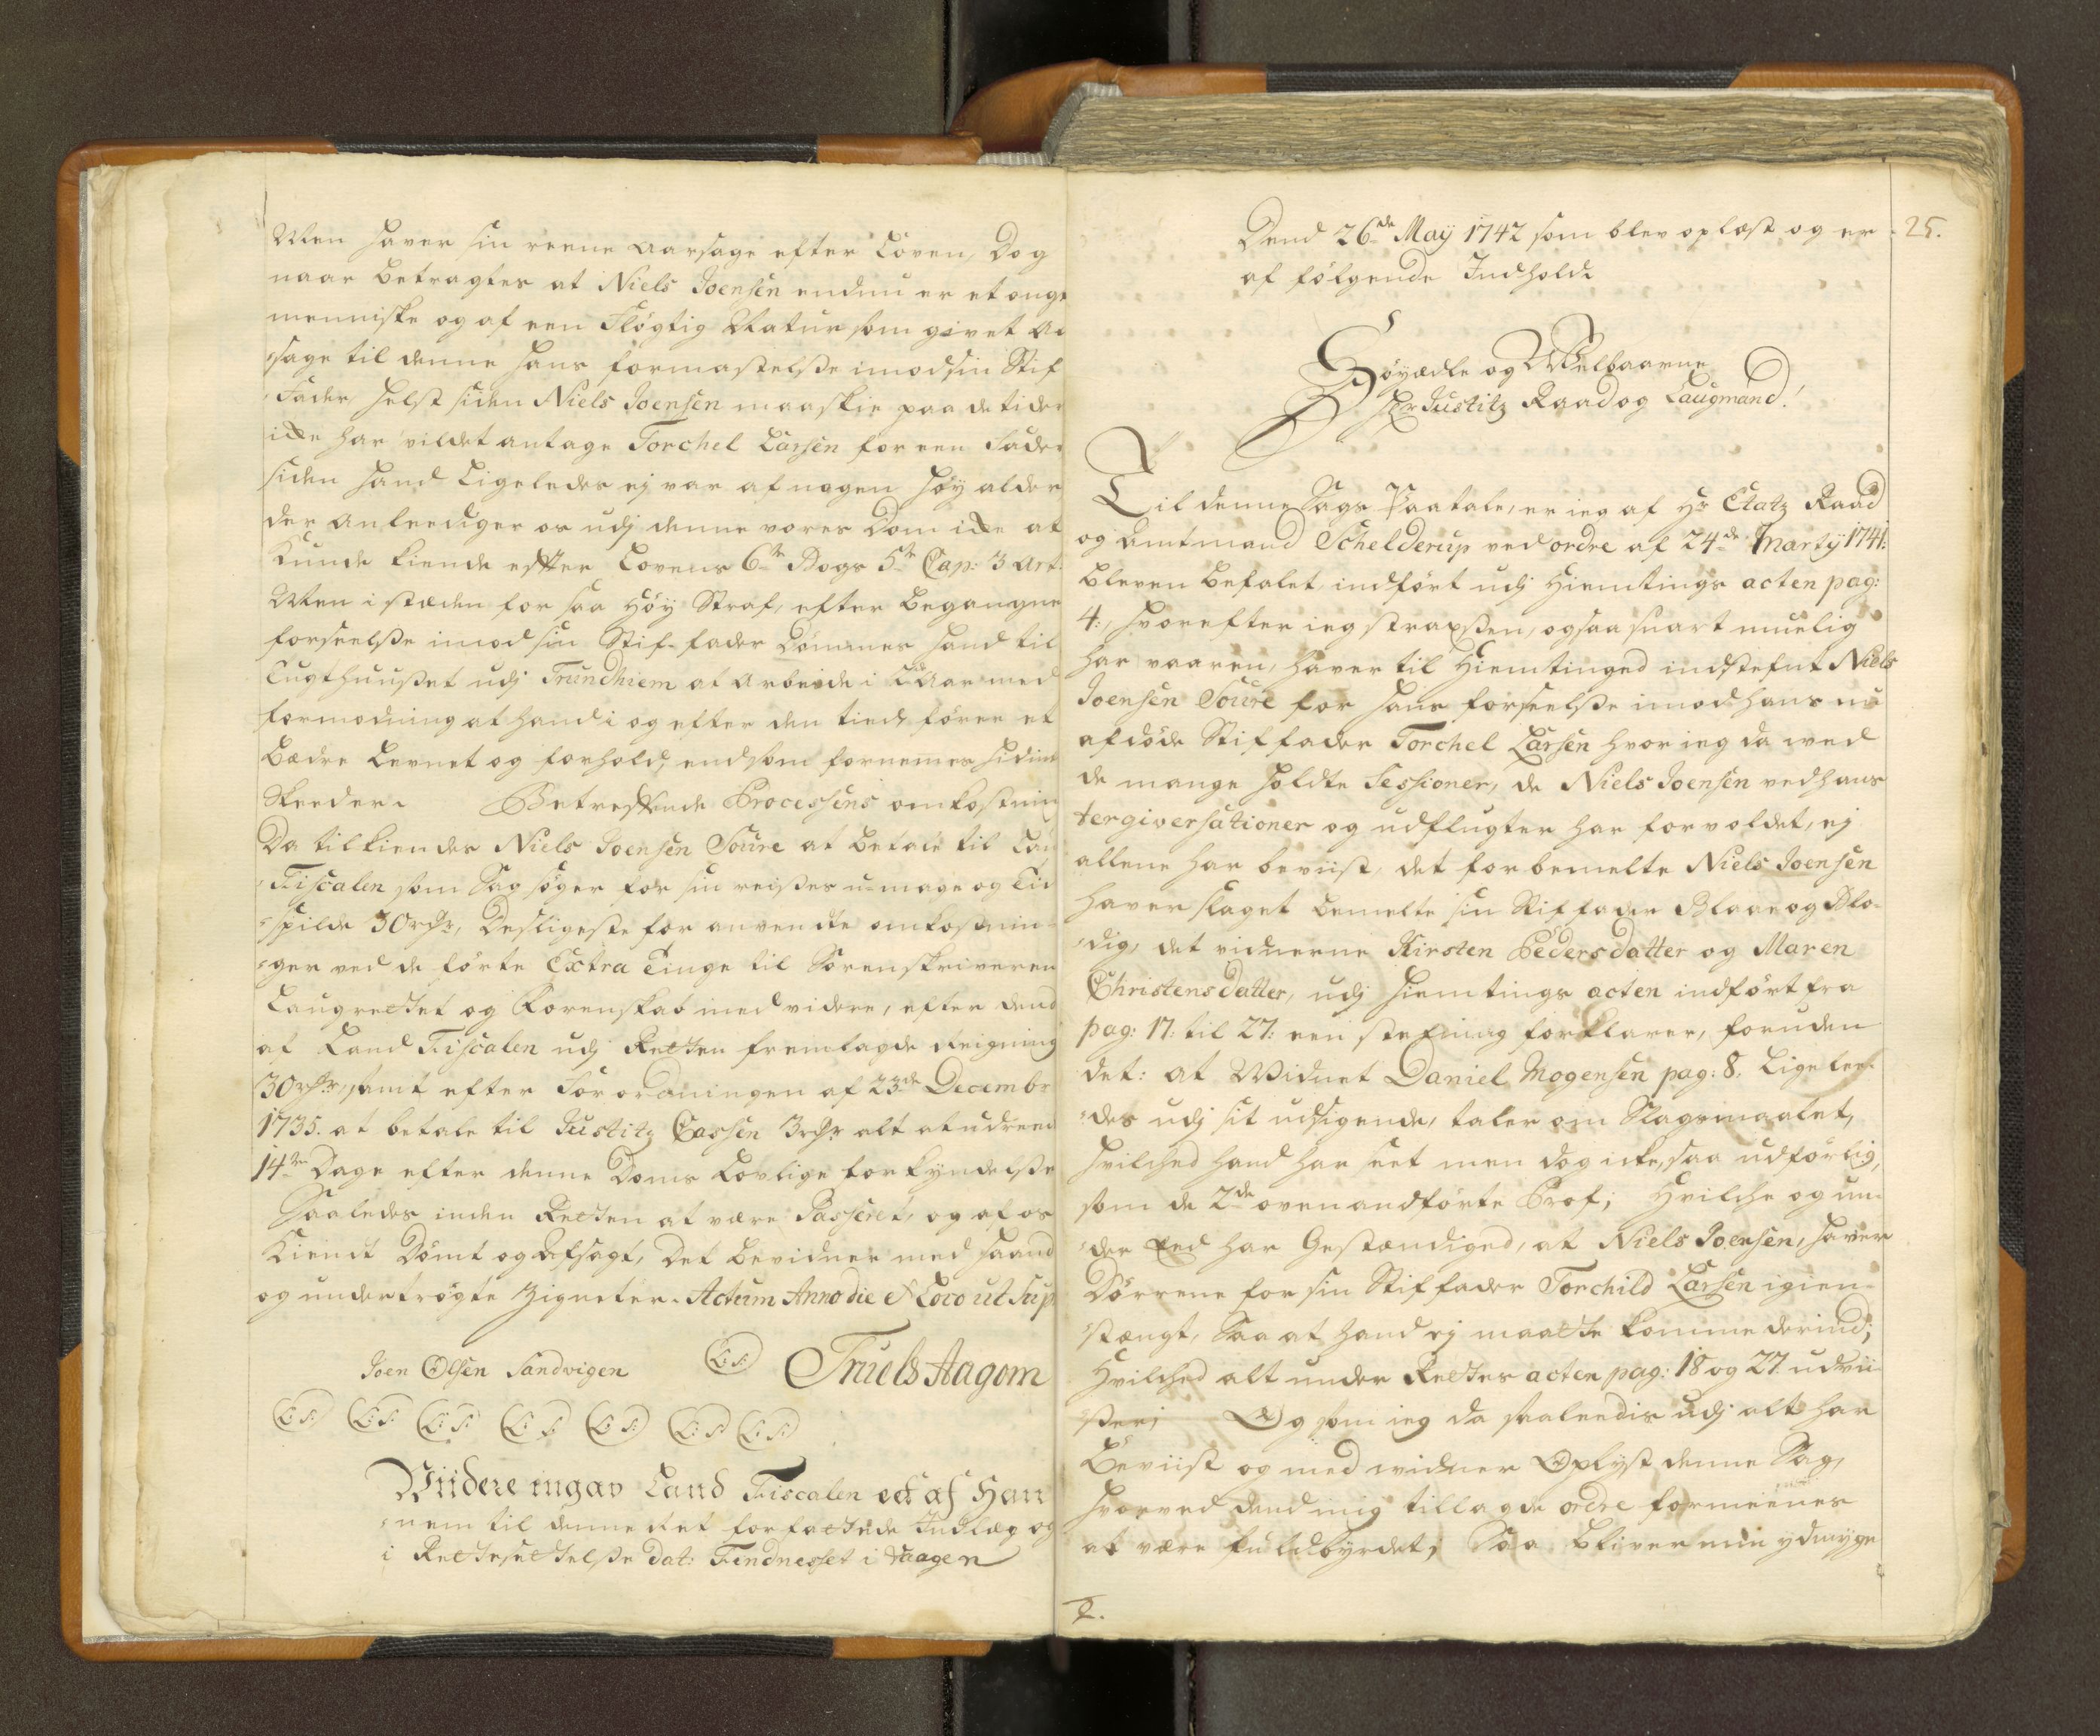 Men haver sin reene Aarsage efter Loven, Dog
naar betragtes at Niels Joensen endnu er et ongt
menniske og af een Fløgtig Natur som givet Aa
sage til denne hans formastelsse imod sin Stif
Fader, helst siden Niels Joensen maaskie paa de tider
icke har vildet antage Torchel Larsen for een Fader
siden hand Ligeledes ej var af nogen høy alder
der anleediger os udj denne vores Dom icke at
Kunde kiende efter Lovens 6te Bogs 5te Cap: 3 Art:
Men i stæden for saa høy Straf, efter begangne
forseelsse imod sin Stif-fader Dømmes hand til
Tugthuusset udj Trundhiem at arbeide i Aar med
formodning at hand i og efter den tiid, fører et
bædre Levnet og forhold, end som fornemes hidind
Skeeder. Betreffende Processens omkostnin
Da tilkiendes Niels Joensen Soure at betale til Lan
Fiscalen som Sag søger for sin reisses u-mage og Tid
spilde 30 rdr, Desligeste for anvendte omkostnin-
ger ved de førte Extra Tinge til Sorenskriveren
Laugrettet og Korenskab med videre, efter dend
af Land Fiscalen udj Retten fremlagde Reigning
30 rdr, samt efter Forordningen af 23de Decembr
1735. at betale til Justitz Cassen 3 rdr alt at udreed
14ten Dage efter denne Doms Lovlige forkyndelsse
Saaledes inden Retten at være Passeret, og af os
Kiendt Dømt og Afsagt, Det bevidner med haand
og undertrøgte Zigneter. Actum Anno die & Loco ut Sup
Joen Olsen Sandvigen (L:S:) Truels Aagom
(L:S:) (L:S:) (L:S:) (L:S:) (L:S:) (L:S:) (L:S:)
Viidere ingav Land Fiscalen ett af Han
nem til denne Ret forfattede Indlæg og
i Rettesettelsse dat: Findnesset i Vaagen
Dend 26de Maÿ 1742 som blev oplæst og er
af følgende Indhold.
25.
Høyædle og Welbaarne
Hr Justitz Raad og Laugmand!
Til denne Sags Paatale, er ieg af Hr Etatz Raad
og Amtmand Schelderup ved ordre af 24de Martÿ 1741:
bleven befalet, indført udj Hiemtings acten pag:
4:, hvorefter ieg straxsen, ogsaa snart muelig
har vaaren, haver til Hiemtinged indstefnt Niels
Joensen Soure for hans forseelsse imod hans nu
afdøde Stiffader Torchel Larsen hvor ieg da wed
de mange holdte Sessioner, de Niels Joensen ved hans
tergiversationer og udflugter har forvoldet, ej
allene har beviist, det forbemelte Niels Joensen
haver slaget bemelte sin Stiffader Blaae og Blo-
dig, det vidnerne Kirsten Pedersdatter og Maren
Christensdatter, udj Hiemtings acten indført fra
pag: 17: til 27: een stemig forklarer, foruden
det: at Widnet Daniel Mogensen pag: 8. Ligelee-
des udj sit udsigende, taler om Slagsmaalet,
hvilched hand har seet men dog icke, saa udførlig,
som de 2de ovenandførte Prof; Hvilche og un-
der Eed har Gestændiged, at Niels Joensen, haver
Dørrene for sin Stiffader Torchild Larsen igien-
stængt, Saa at hand ej maatte komme derind;
Hvilched alt under Rettes acten pag: 18 og 27 udvii-
sser; Og som ieg da saaleedis udj alt har
Beviist og med widner Oplyst denne Sag,
hvorved dend mig tillagde ordre formeenes
at være fuldbyrdet; Saa bliver min ydmyge
2.